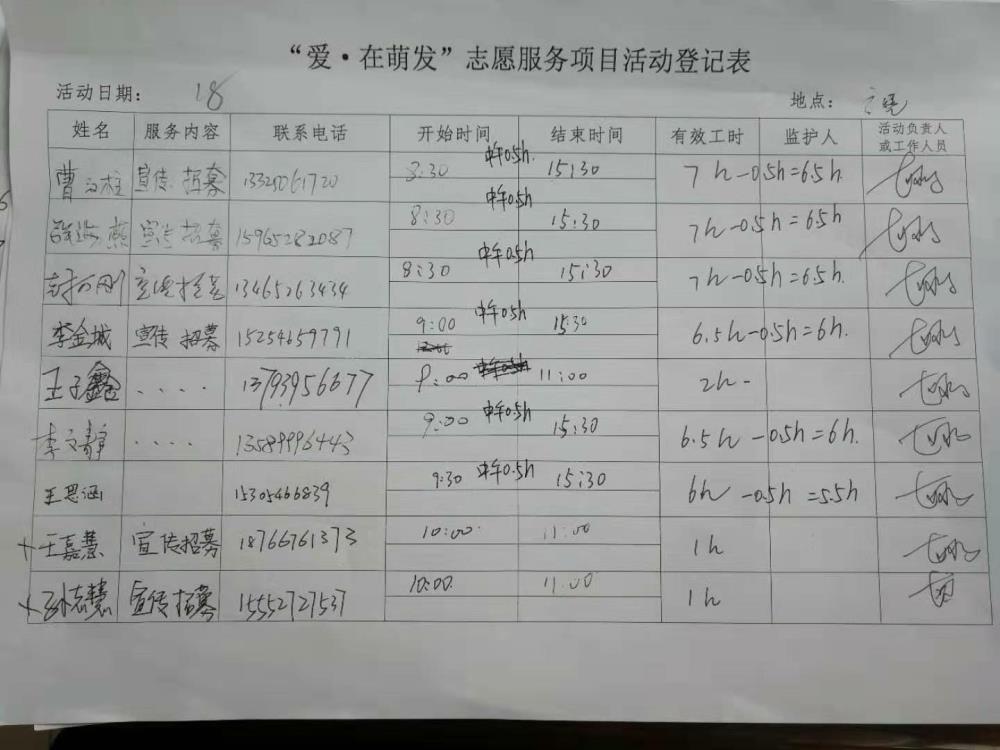 “爱·在萌发”志愿服务项目活动登记表
活动日期： 18 地点：
姓名 服务内容 联系电话 开始时间 结束时间 有效工时 监护人 活动负责人或工作人员
曹 柱 宣传 招募 8:30 中午0.5h. 15:30 7h-0.5h=6.5h.
宣传 招募 15965282087 8:30 中午0.5h 15:30 7h-0.5h=6.5h
刚 宣传招募 13465263434 8:30 中午0.5h 15:30 7h-0.5h=6.5h.
李金城 宣传 招募 15254659791 9:00 中午0.5h 15:30 6.5h-0.5h=6h.
王子鑫 .... 13793956677 9:00 11:00 2h-
李文静 .... 13589996443 9:00 中午0.5h 15:30 6.5h-0.5h=6h.
王思涵 15305466839 9:30 中午0.5h 15:30 6h-0.5h=5.5h
王嘉慧 宣传招募 18766761373 10:00 11:00 1h
孙志慧 宣传招募 15552727537 10:00 11:00 1h